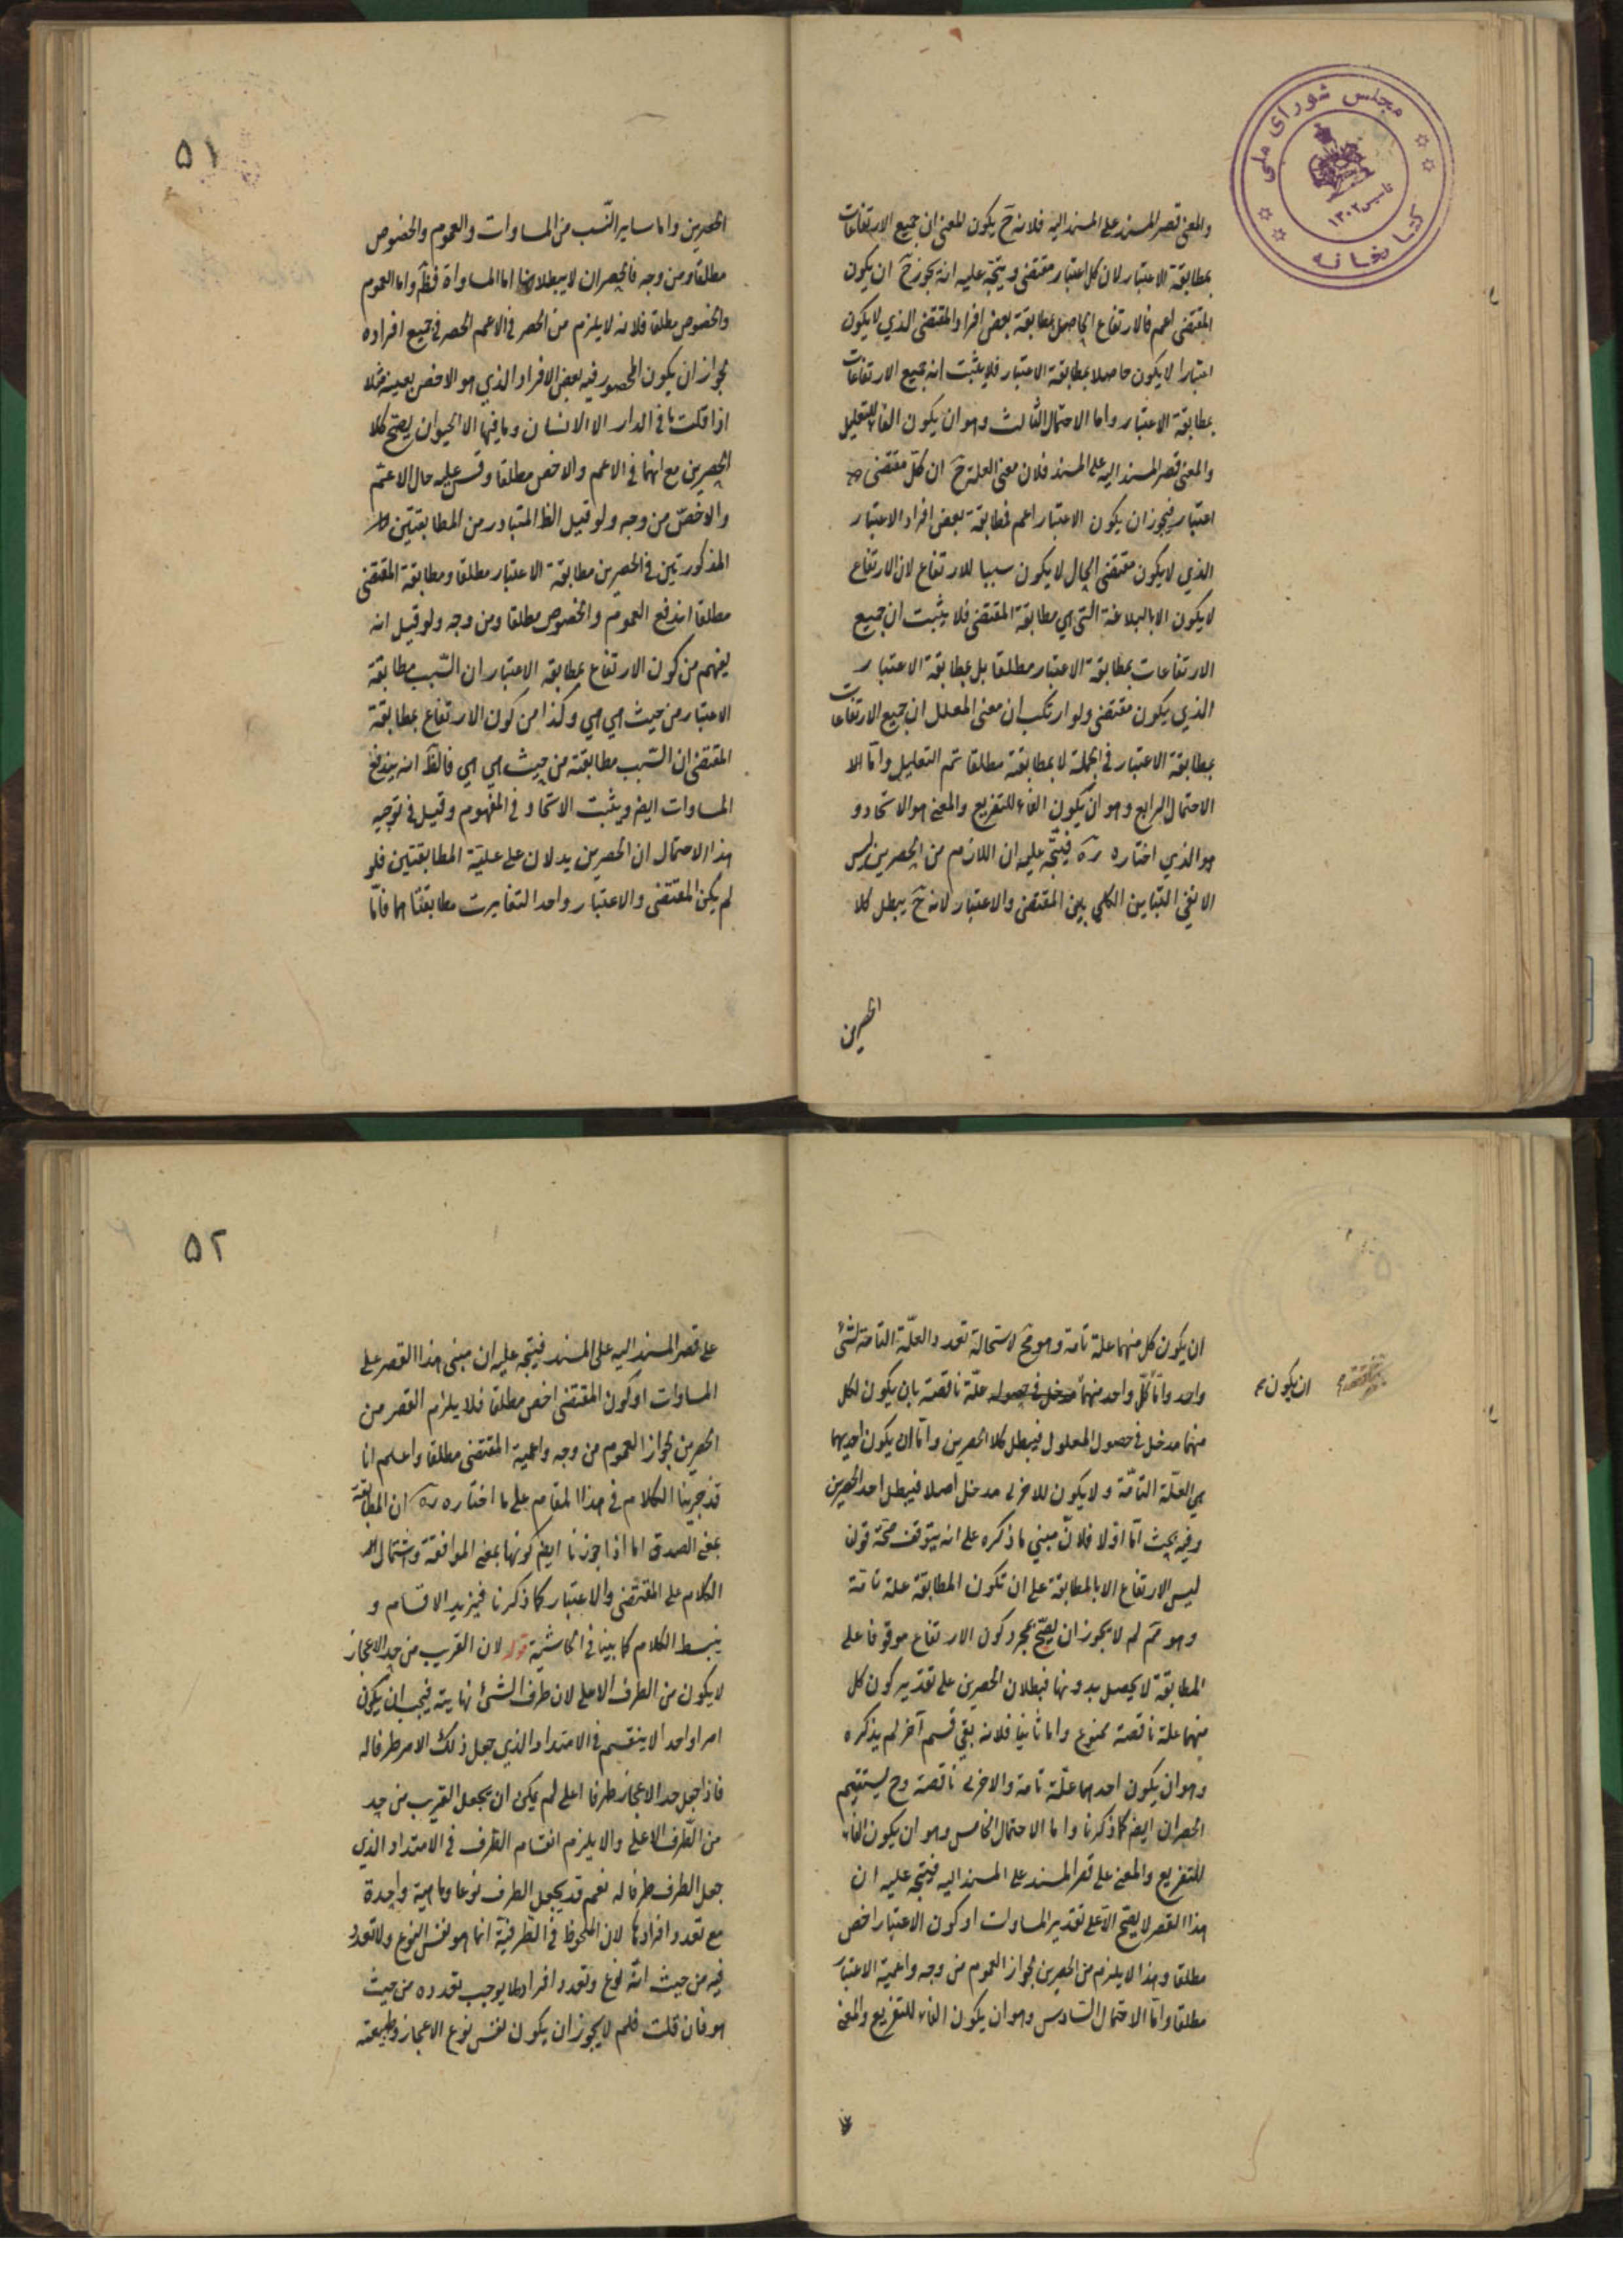 مجلس شورای ملی
كتابخانه
تاسيس ١٣٠٢
والمعنى قصر المسند على المسند اليه فلانه ح يكون المعنى ان جميع الارتفاعات
بمطابقة الاعتبار لان كل اعتبار مقتضى ويتجه عليه انه يجوز ح ان يكون
المقتضى اعم فالارتفاع الحاصل بمطابقة بعض افراد المقتضى الذي لا يكون
اعتبارا لا يكون حاصلا بمطابقة الاعتبار فلا يثبت انه جميع الارتفاعات
بمطابقة الاعتبار واما الاحتمال الثالث وهو ان يكون الفاء للتعليل
والمعنى قصر المسند اليه على المسند فلان معنى العلة ح ان كل مقتضى
اعتبار فيجوز ان يكون الاعتبار اعم فمطابقة بعض افراد الاعتبار
الذي لا يكون مقتضى الحال لا يكون سببا للارتفاع لان الارتفاع
لا يكون الا بالبلاغة التي هي مطابقة المقتضى فلا يثبت ان جميع
الارتفاعات بمطابقة الاعتبار مطلقا بل بمطابقة الاعتبار
الذي يكون مقتضى ولو ارتكب ان معنى المعلل ان جميع الارتفاعات
بمطابقة الاعتبار في الجملة لا بمطابقته مطلقا تم التعليل واما الا
الاحتمال الرابع وهو ان يكون الفاء للتفريع والمعنى هو الاتحاد و
هو الذي اختاره ره فيتجه عليه ان اللازم من الحصرين ليس
الا نفي التباين الكلي بين المقتضى والاعتبار لانه ح يبطل كلا
الحصرين
٥١
الحصرين واما ساير النسب من المساوات والعموم والخصوص
مطلقا ومن وجه فالحصران لا يبطلانها اما المساواة فظ واما العموم
والخصوص مطلقا فلانه لا يلزم من الحصر في الاعم الحصر في جميع افراده
لجواز ان يكون المحصور فيه بعض الافراد الذي هو الاخص بعينه مثلا
اذا قلت ما في الدار الا الانسان وما فيها الا الحيوان يصح كلا
الحصرين مع انهما في الاعم والاخص مطلقا وقس عليه حال الاعم
والاخص من وجه ولو قيل الظ المتبادر من المطابقتين
المذكورتين في الحصرين مطابقة الاعتبار مطلقا ومطابقة المقتضى
مطلقا اندفع العموم والخصوص مطلقا ومن وجه ولو قيل انه
يفهم من كون الارتفاع بمطابقة الاعتبار ان السبب مطابقة
الاعتبار من حيث هي هي وكذا من كون الارتفاع بمطابقة
المقتضى ان السبب مطابقته من حيث هي هي فالظ انه يندفع
المساوات ايضا ويثبت الاتحاد في المفهوم وقيل في توجيه
هذا الاحتمال ان الحصرين يدلان على علية المطابقتين فلو
لم يكن المقتضى والاعتبار واحدا لتغايرت مطابقتاهما فاما
ان يكون كل منهما علة تامة وهو مح لاستحالة تعدد العلة التامة لشئ
واحد واما كل واحد منهما مدخل في حصوله علة ناقصة بان يكون لكل
ان يكون
منهما مدخل في حصول المعلول فيبطل كلا الحصرين واما ان يكون احديهما
هي العلة التامة ولا يكون للاخرى مدخل اصلا فيبطل احد الحصرين
وفيه بحث اما اولا فلان مبني ما ذكره على انه يتوقف صحة قولن
ليس الارتفاع الا بالمطابقة على ان تكون المطابقة علة تامة
وهو مم لم لا يجوز ان يصح بمجرد كون الارتفاع موقوفا على
المطابقة لا يحصل بدونها فبطلان الحصرين على تقدير كون كل
منهما علة ناقصة ممنوع واما ثانيا فلانه بقي قسم آخر لم يذكره
وهو ان يكون احدهما علة تامة والاخرى ناقصة وح يستقيم
الحصران ايضا كما ذكرنا واما الاحتمال الخامس وهو ان يكون الفاء
للتفريع والمعنى على قصر المسند على المسند اليه فيتجه عليه ان
هذا القصر لا يصح الا على تقدير المساوات او كون الاعتبار اخص
مطلقا وهذا لا يلزم من الحصرين لجواز العموم من وجه واعمية الاعتبار
مطلقا واما الاحتمال السادس وهو ان يكون الفاء للتفريع والمعنى
٥٢
على قصر المسند اليه على المسند فيتجه عليه ان مبنى هذا القصر على
المساوات او كون المقتضى اخص مطلقا فلا يلزم القصر من
الحصرين لجواز العموم من وجه واعمية المقتضى مطلقا واعلم انا
قد جرينا الكلام في هذا المقام على ما اختاره ره ان المطابقة
بمعنى الصدق اما اذا جوزنا ايضا كونها بمعنى الموافقة واشتمال
الكلام على المقتضى والاعتبار كما ذكرنا فيزيد الاقسام و
ينبسط الكلام كما بينا في الحاشية قوله لان القريب من حد الاعجاز
لا يكون من الطرف الاعلى لان طرف الشئ نهايته فيجب ان يكون
امرا واحدا لا ينقسم في الامتداد الذي جعل ذلك الامر طرفا له
فاذا جعل حد الاعجاز طرفا اعلى لم يمكن ان يجعل القريب من حد
من الطرف الاعلى والا يلزم انقسام الطرف في الامتداد الذي
جعل الطرف طرفا له نعم قد يجعل الطرف نوعا وماهية واحدة
مع تعدد افرادها لان الملحوظ في الطرفية انما هو نفس النوع ولا تعدد
فيه من حيث انه نوع وتعدد افراده لا يوجب تعدده من حيث
هو فان قلت فلم لا يجوز ان يكون نفس نوع الاعجاز وطبيعته